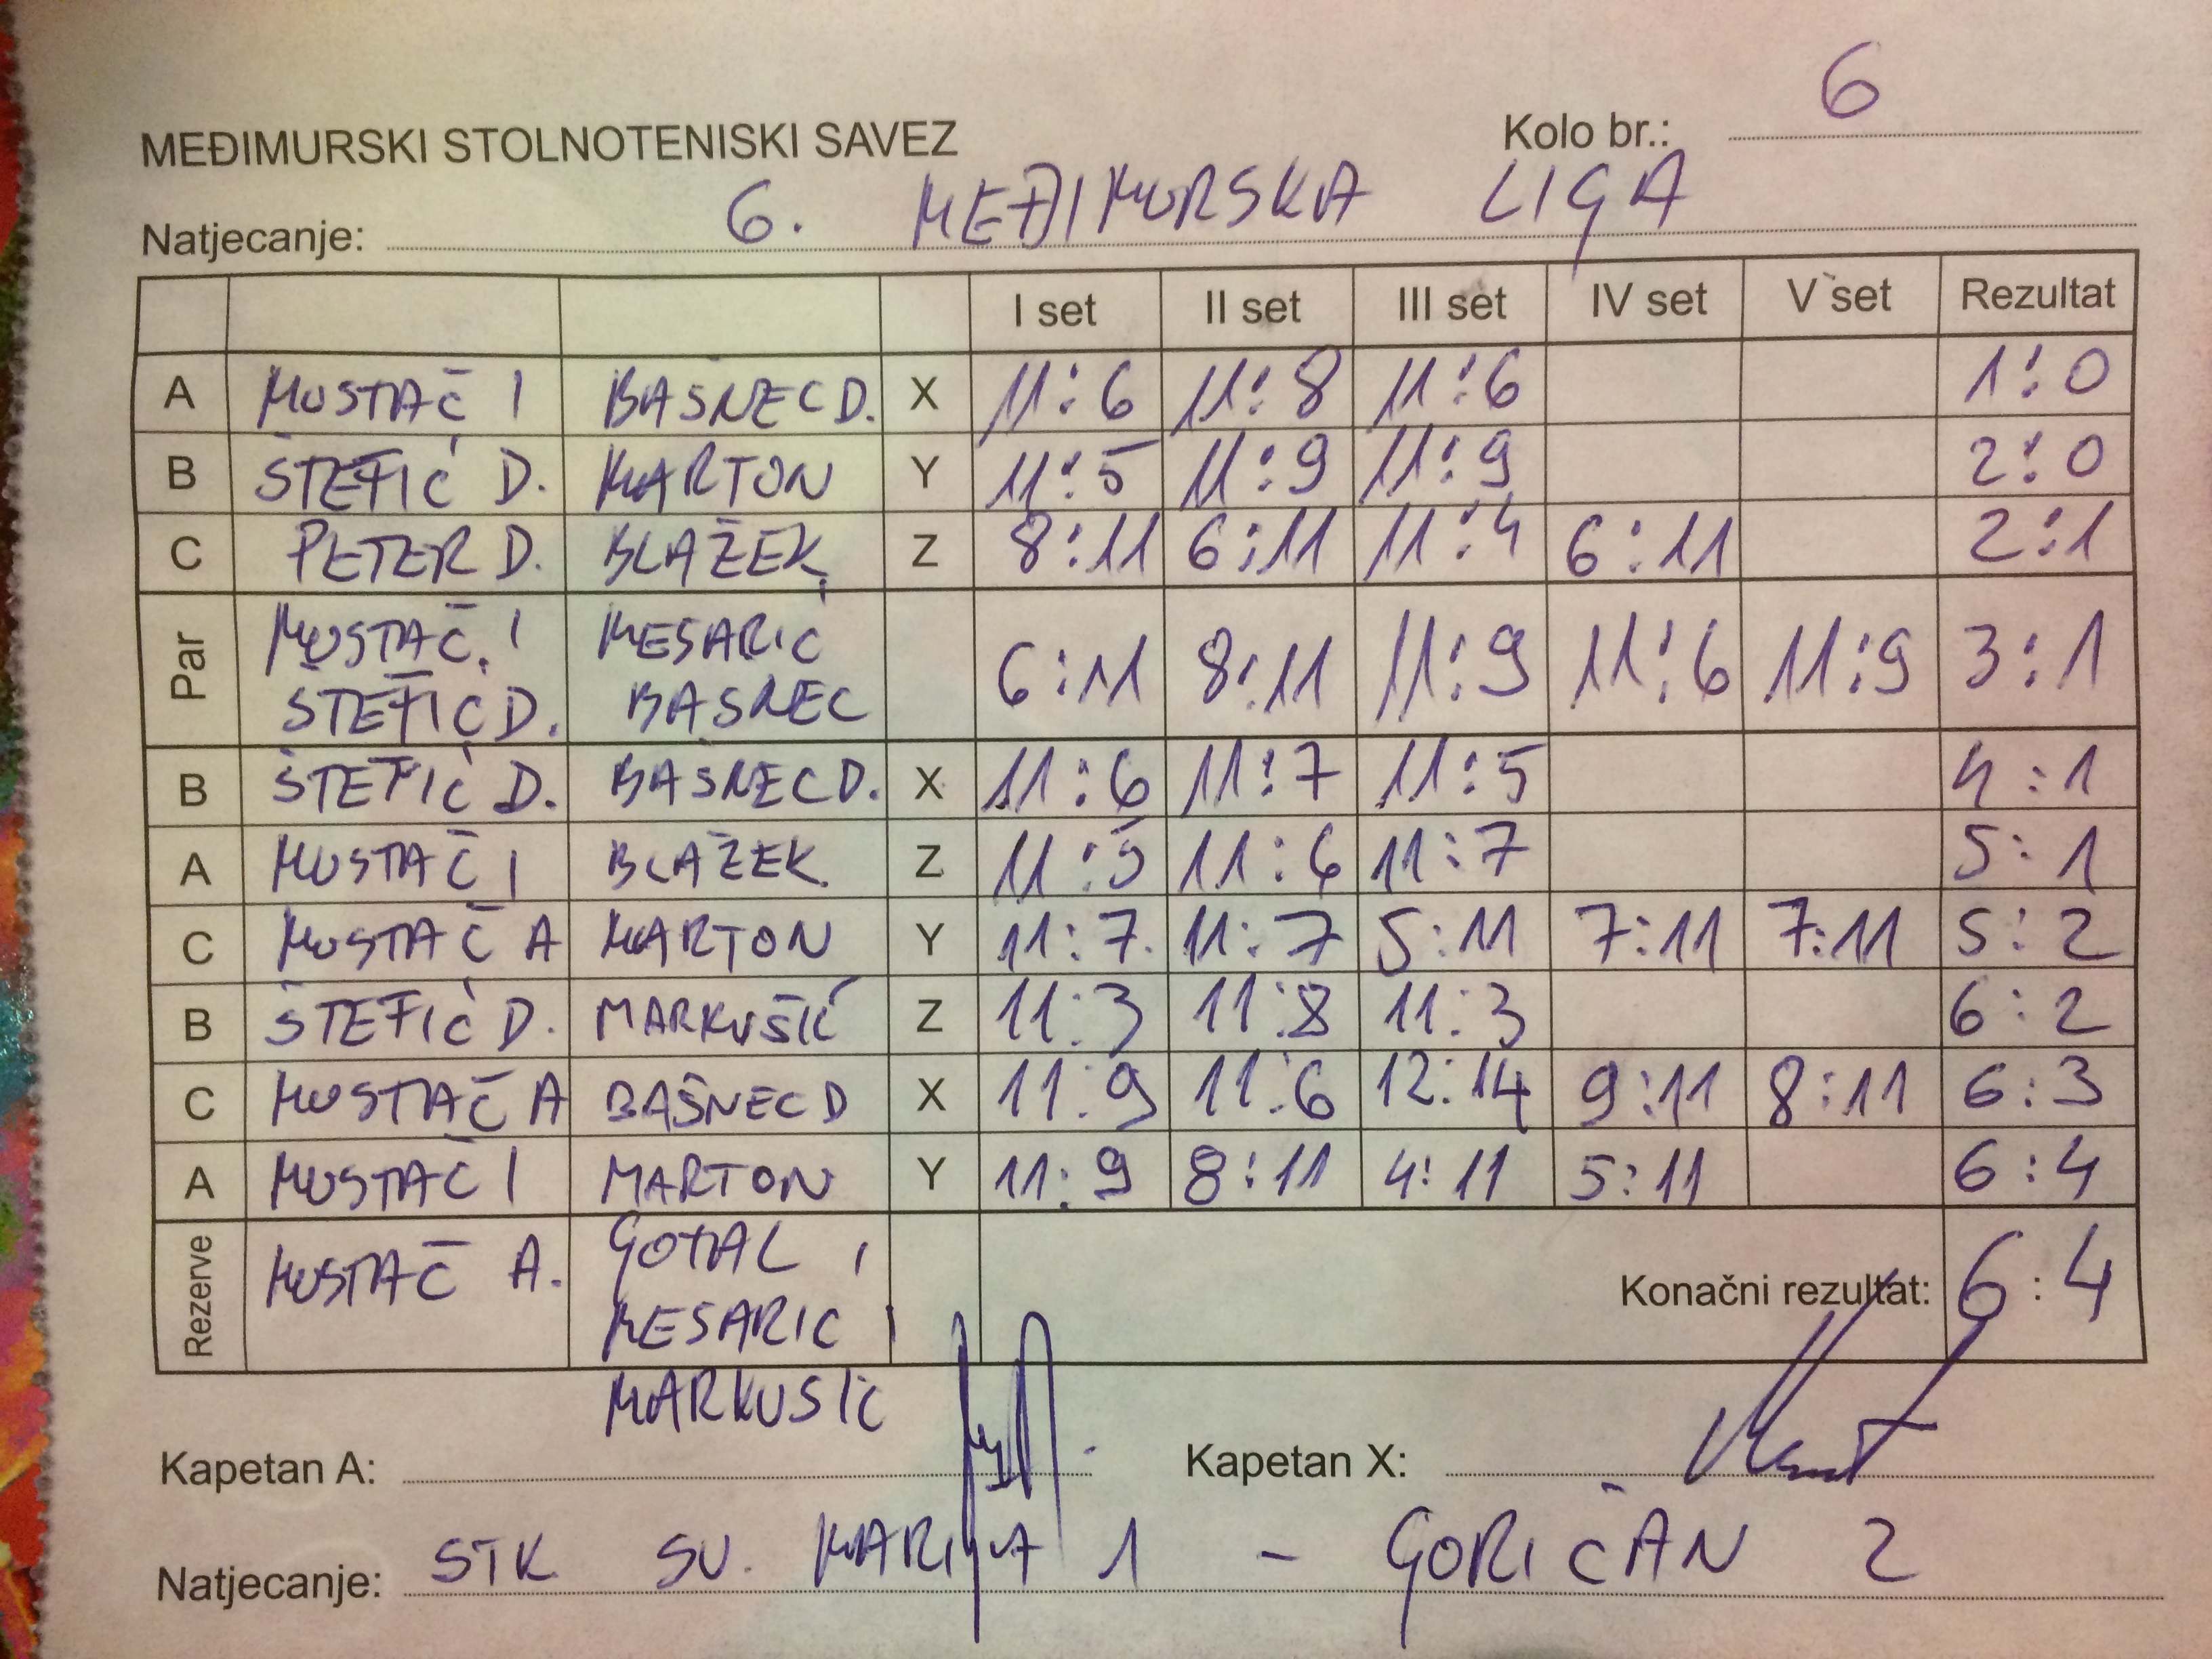 Kolo br.: 6
MEĐIMURSKI STOLNOTENISKI SAVEZ
Natjecanje: 6. MEĐIMURSKA LIGA
I set II set III set IV set V set Rezultat
A MUSTAČ I BAŠNEC D. X 11:6 11:8 11:6 1:0
B ŠTEFIĆ D. MARTON Y 11:5 11:9 11:9 2:0
C PETER D. BLAŽEK Z 8:11 6:11 11:4 6:11 2:1
Par MUSTAČ I MESARIĆ 6:11 8:11 11:9 11:6 11:9 3:1
ŠTEFIĆ D. BAŠNEC
B ŠTEFIĆ D. BAŠNEC D. X 11:6 11:7 11:5 4:1
A MUSTAČ I BLAŽEK Z 11:5 11:6 11:7 5:1
C MUSTAČ A MARTON Y 11:7 11:7 5:11 7:11 7:11 5:2
B ŠTEFIĆ D. MARKUŠIĆ Z 11:3 11:8 11:3 6:2
C MUSTAČ A BAŠNEC D X 11:9 11:6 12:14 9:11 8:11 6:3
A MUSTAČ I MARTON Y 11:9 8:11 4:11 5:11 6:4
Rezerve MUSTAČ A. GOTAL, Konačni rezultat: 6:4
MESARIĆ,
MARKUSIĆ
Kapetan A: Kapetan X:
Natjecanje: STK SV. MARIJA 1 - GORIČAN 2